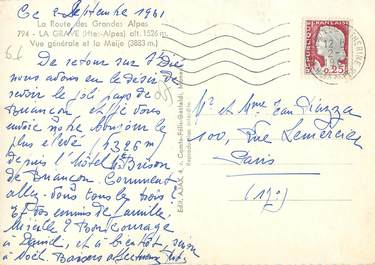 Ce 2 Septembre 1961
La Route des Grandes Alpes
794 - LA GRAVE (Htes-Alpes) alt. 1526 m
Vue générale et la Meije (3883 m.)
De retour sur
nous avons eu le désir de
revoir le joli pays de
Briançon et je vous
envoie notre bonjour le
plus élevé, 1326 m
depuis l'hôtel Mt Brison
de Briançon. Comment
allez-vous tous les trois
Et vos ennuis de famille
Mireille ? Bon courage
à Daniel, et à bientôt,
Noël. Baisers affectueux
Edit. AJAX
Reproduction interdite
REPUBLIQUE FRANÇAISE
0,25
Mr et Mme Jean Piazza
100, Rue Lemercier
Paris
(17e)